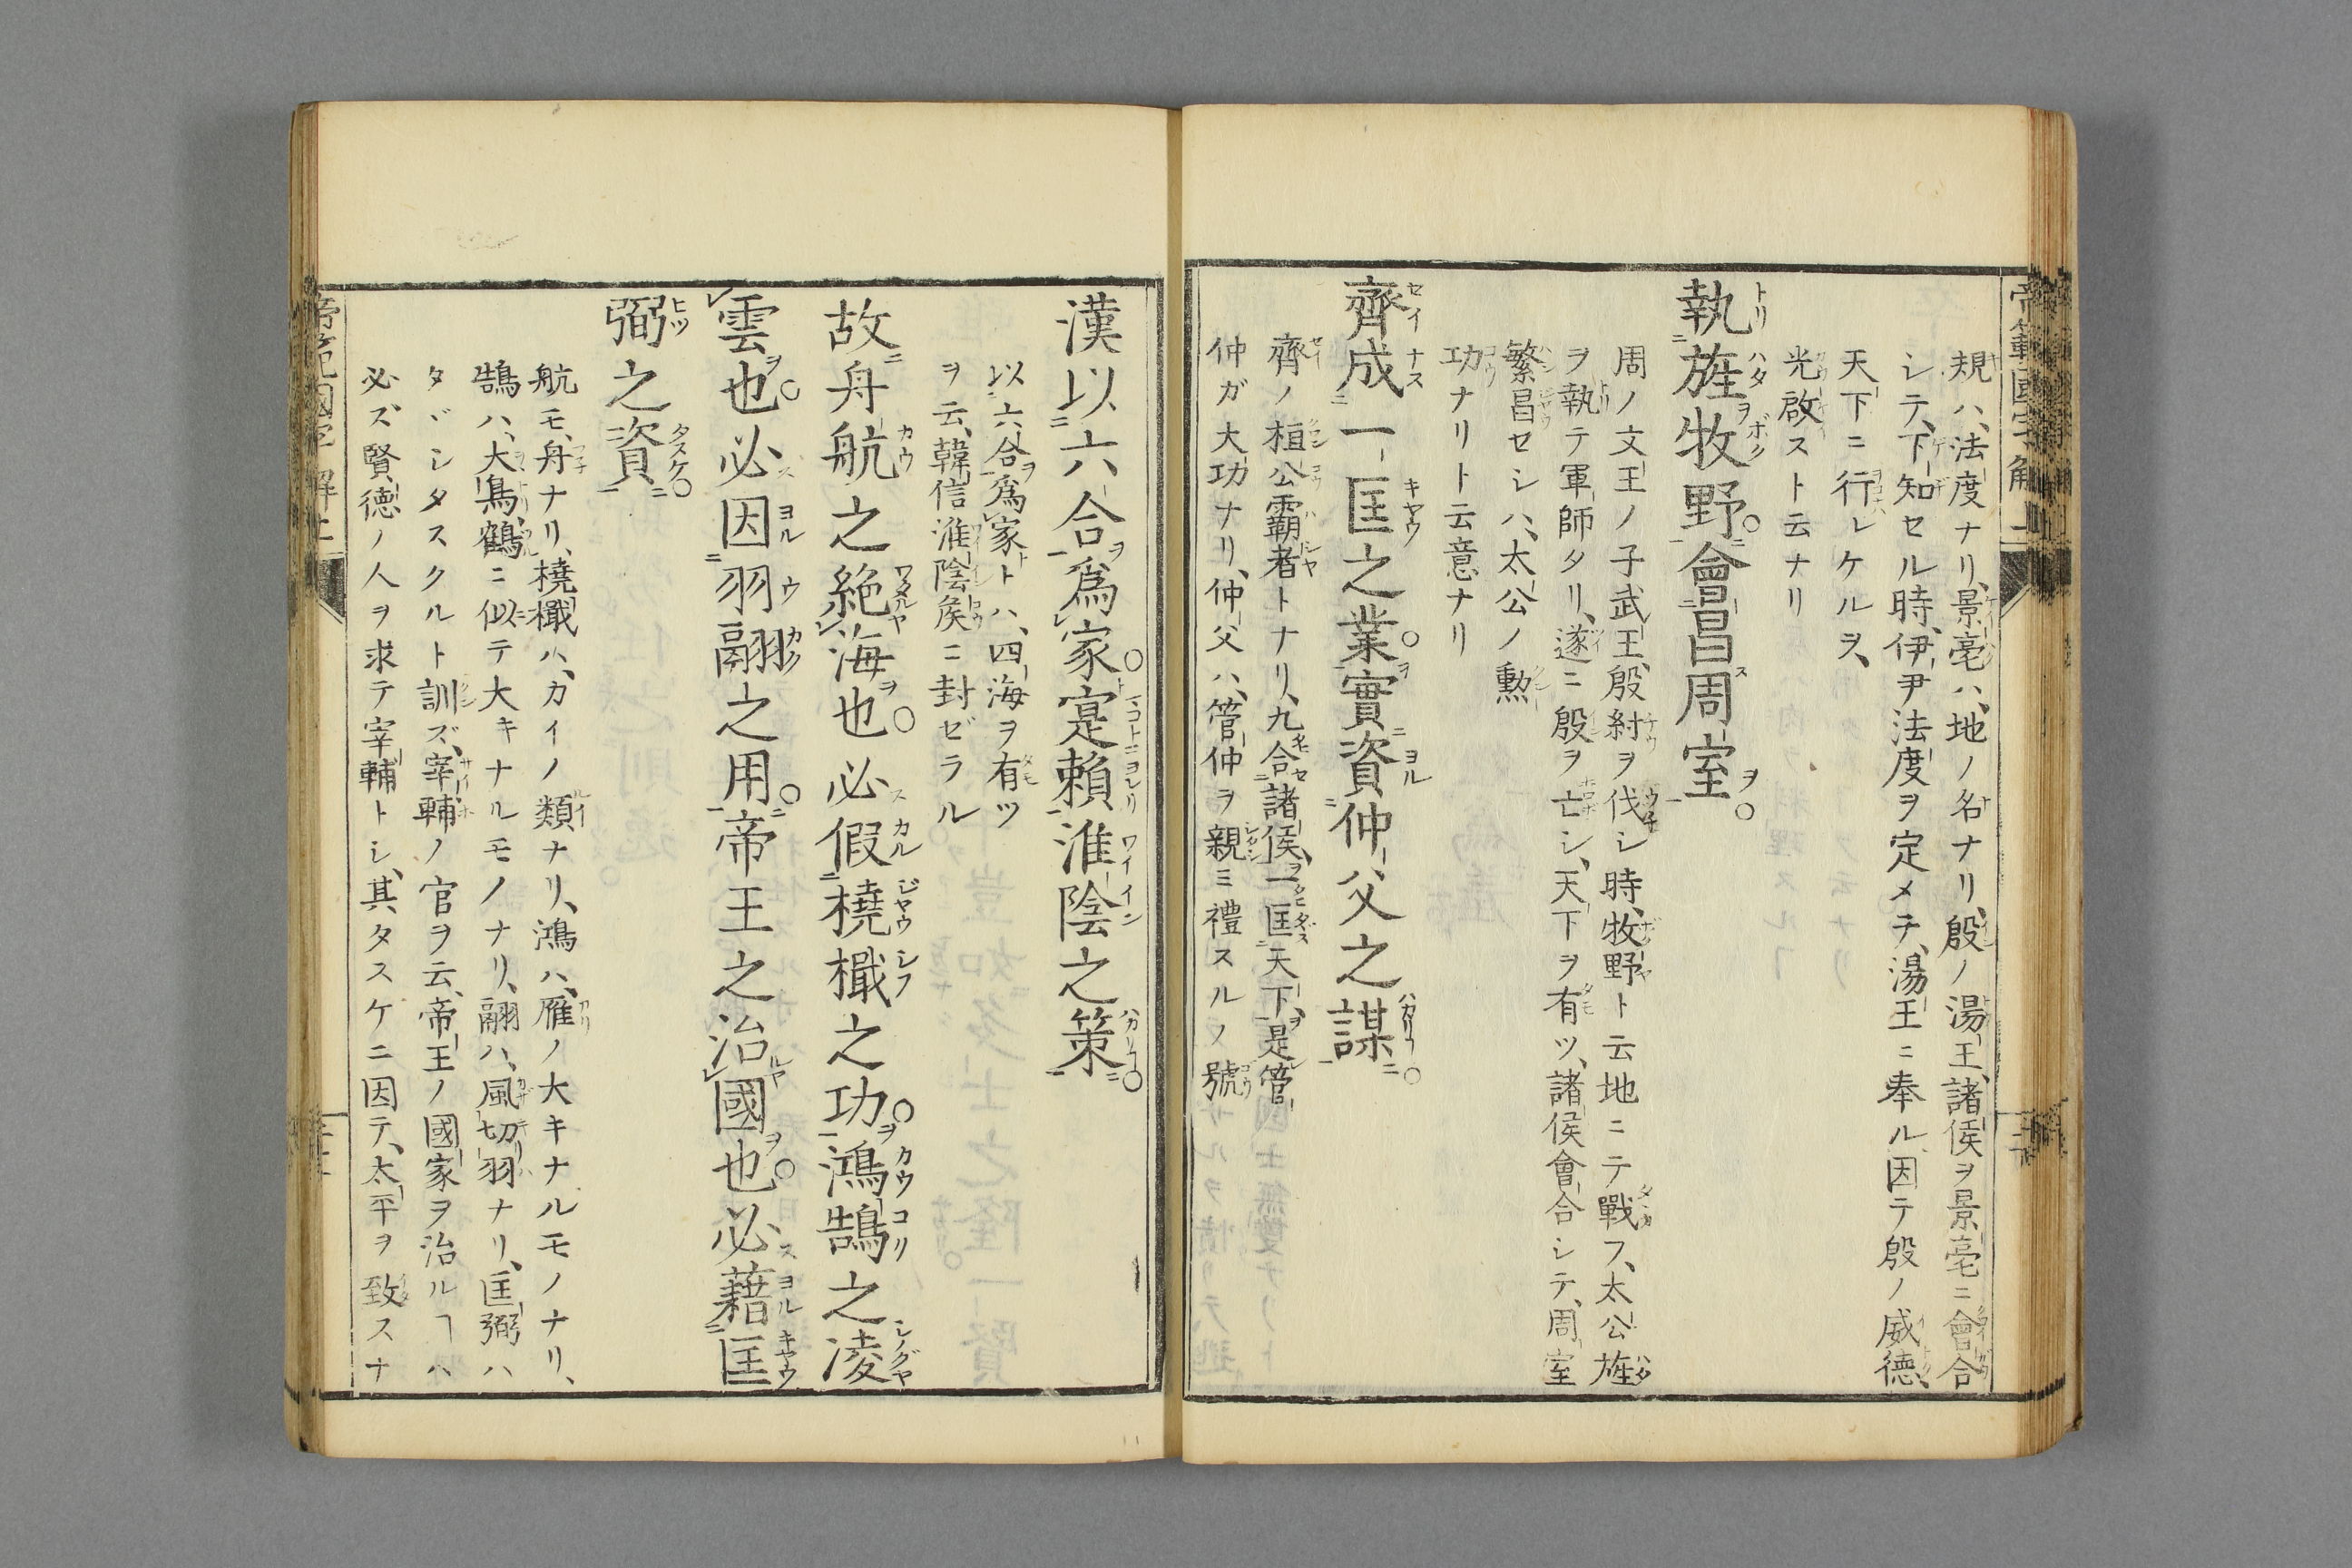 規ハ、法度ナリ、景亳ハ、地ノ名ナリ、殷ノ湯王、諸侯ヲ景亳ニ會合
シテ、下知セル時、伊尹法度ヲ定メテ、湯王ニ奉ル、因テ殷ノ威德、
天下ニ行レケルヲ、
光啟スト云ナリ
執旌牧野會昌周室
周ノ文王ノ子武王、殷紂ヲ伐シ時、牧野ト云地ニテ戰フ、太公旌
ヲ執テ軍師タリ、遂ニ殷ヲ亡シ、天下ヲ有ツ、諸侯會合シテ、周室
繁昌セシハ、太公ノ勲
功ナリト云意ナリ
齊成一匡之業實資仲父之謀
齊ノ桓公霸者トナリ、九合諸侯、一匡天下、是管
仲ガ大功ナリ、仲父ハ、管仲ヲ親ミ禮スルノ號
漢以六合爲家寔賴淮陰之策
以六合爲家トハ、四海ヲ有ツ
ヲ云、韓信淮陰矦ニ封ゼラル
故舟航之絶海也必假橈檝之功鴻鵠之凌
雲也必因羽翮之用帝王之治國也必藉匡
弼之資
航モ、舟ナリ、橈檝ハ、カイノ類ナリ、鴻ハ、雁ノ大キナルモノナリ、
鵠ハ、大鳥、鶴ニ似テ大キナルモノナリ、翮ハ、風切羽ナリ、匡弼ハ
タヾシタスクルト訓ズ、宰輔ノ官ヲ云、帝王ノ國家ヲ治ルヿハ
必ズ賢德ノ人ヲ求テ宰輔トシ、其タスケニ因テ、太平ヲ致スナ